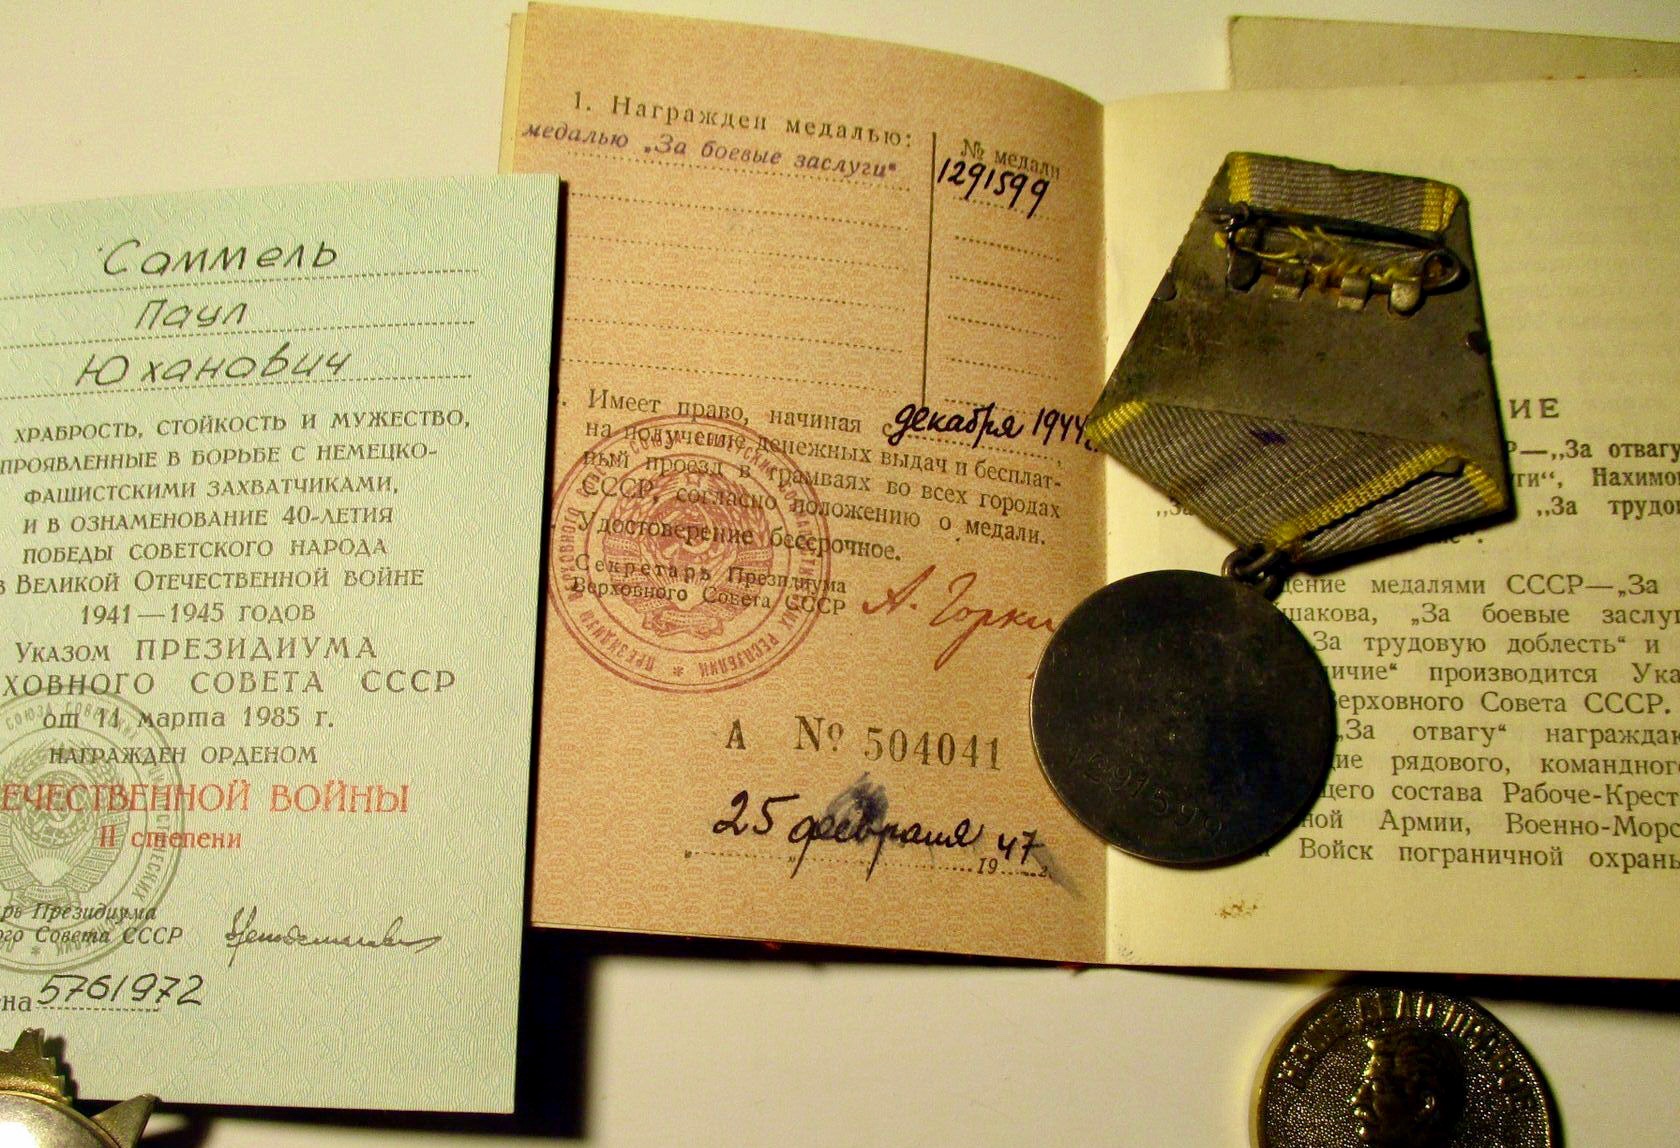 Саммель
Паул
Юханович
ХРАБРОСТЬ, СТОЙКОСТЬ И МУЖЕСТВО,
ПРОЯВЛЕННЫЕ В БОРЬБЕ С НЕМЕЦКО-
ФАШИСТСКИМИ ЗАХВАТЧИКАМИ,
И В ОЗНАМЕНОВАНИЕ 40-ЛЕТИЯ
ПОБЕДЫ СОВЕТСКОГО НАРОДА
В ВЕЛИКОЙ ОТЕЧЕСТВЕННОЙ ВОЙНЕ
1941—1945 ГОДОВ
УКАЗОМ ПРЕЗИДИУМА
ХОВНОГО СОВЕТА СССР
от 11 марта 1985 г.
НАГРАЖДЕН ОРДЕНОМ
ЕЧЕСТВЕННОЙ ВОЙНЫ
II степени
рь Президиума
ого Совета СССР
на 5761972
1. Награжден медалью:
№ медали
медалью „За боевые заслуги“
1291599
Имеет право, начиная с декабря 1944
на получение денежных выдач и бесплат-
ный проезд в трамваях во всех городах
СССР, согласно положению о медали.
Удостоверение бессрочное.
Секретарь Президиума
Верховного Совета СССР
А. Горки
А № 504041
25 февраля 1947 г.
1291599
НИЕ
Р—„За отвагу
ги“, Нахимо
„За трудо
дение медалями СССР—„За
шакова, „За боевые заслу
За трудовую доблесть“ и
ичие“ производится Ука
Верховного Совета СССР.
„За отвагу“ награждаю
щие рядового, командног
щего состава Рабоче-Крест
ной Армии, Военно-Морс
Войск пограничной охраны
НАШЕ ДЕЛО ПРАВОЕ